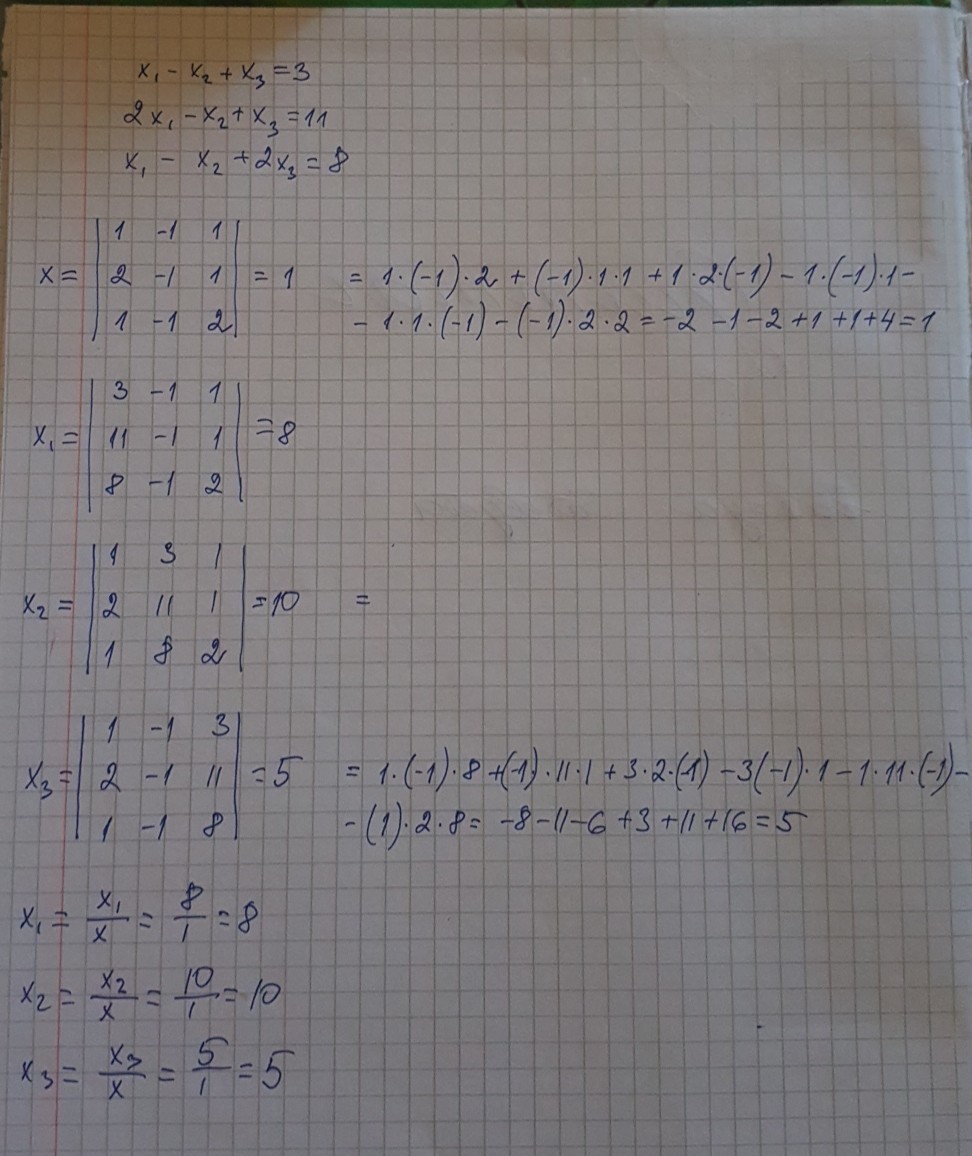 x₁ - x₂ + x₃ = 3
2x₁ - x₂ + x₃ = 11
x₁ - x₂ + 2x₃ = 8
| 1 -1 1 |
x = | 2 -1 1 | = 1 = 1·(-1)·2 + (-1)·1·1 + 1·2·(-1) - 1·(-1)·1 -
| 1 -1 2 | - 1·1·(-1) - (-1)·2·2 = -2 -1 -2 +1 +1 +4 = 1
| 3 -1 1 |
x₁ = | 11 -1 1 | = 8
| 8 -1 2 |
| 1 3 1 |
x₂ = | 2 11 1 | = 10 =
| 1 8 2 |
| 1 -1 3 |
x₃ = | 2 -1 11 | = 5 = 1·(-1)·8 + (-1)·11·1 + 3·2·(-1) - 3(-1)·1 - 1·11·(-1) -
| 1 -1 8 | - (1)·2·8 = -8 -11 -6 +3 +11 +16 = 5
x₁ = x₁/x = 8/1 = 8
x₂ = x₂/x = 10/1 = 10
x₃ = x₃/x = 5/1 = 5